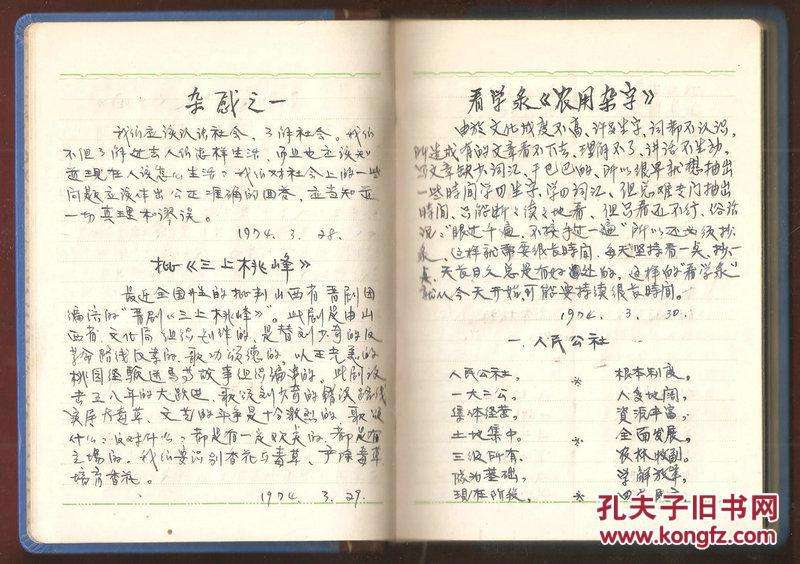 杂感之一
我们应该认识社会、了解社会。我们
不但了解过去人们怎样生活，而且也应该知
道现在人该怎么生活？我们对社会上的一些
问题应该作出公正准确的回答，应当知道
一切真理和谬误。
1974. 3. 28.
批《三上桃峰》
最近全国开展的批判山西省晋剧团
编演的"晋剧《三上桃峰》"。此剧是由山
西省文化局组织创作的，是替刘少奇的反
革命路线反革命的，歌功颂德的，以王光美的
桃园经验送马等故事组织编事的。此剧攻
击五八年的大跃进，歌颂刘少奇的错误路线
实属大毒草。文艺的斗争是十分激烈的，歌颂
什么？反对什么？都是有一定观点的，都是有
立场的。我们要识别香花与毒草，严除毒草
培育香花。
1974. 3. 29.
看学录《农用杂字》
由于文化成度不高，许多生字、词都不认识，
所造成有的文章看不下去，理解不了，讲话不生动，
写文章缺少词汇，干巴巴的，所以很早就想抽出
一些时间学习生字、学习词汇，但总难专门抽出
时间、只能断断续续地看，但只看还不行，俗话
说："眼过千遍，不株手过一遍"所以还必须抄
录，这样就需要很长时间，每天坚持看一点、抄一
点，天长日久总是有好处的，这样的"看学录"
就从今天开始可能要持续很长时间。
1974. 3. 30.
一．人民公社
人民公社， * 根本制度。
一大二公， 人多地阔，
集体经营， 资源丰富，
土地集中。 * 全面发展。
三级所有， 农林牧副。
队为基础，
现在阶段， *
孔夫子旧书网
kongfz.com